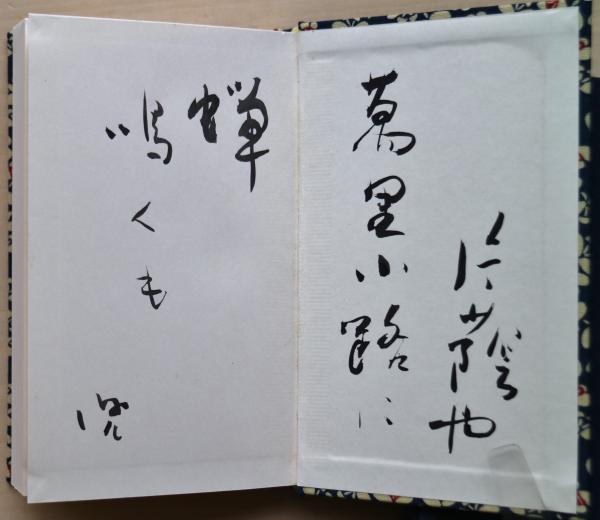 片蔭や
萬里小路に
蝉
鳴くも